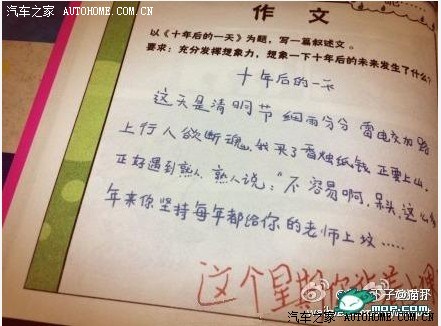 汽车之家 AUTOHOME.COM.CN
作 文
以《十年后的一天》为题，写一篇叙述文。
要求：充分发挥想象力，想象一下十年后的未来发生了什么？
十年后的一天
这天是清明节 细雨分分 雷电交加 路
上行人欲断魂，我买了香烛纸钱 正要上山，
正好遇到熟人，熟人说："不容易啊，呆头，这么多
年来你坚持每年都给你的老师上坟……
这个星期
汽车之家 AUTOHOME.COM.CN
MOP.COM